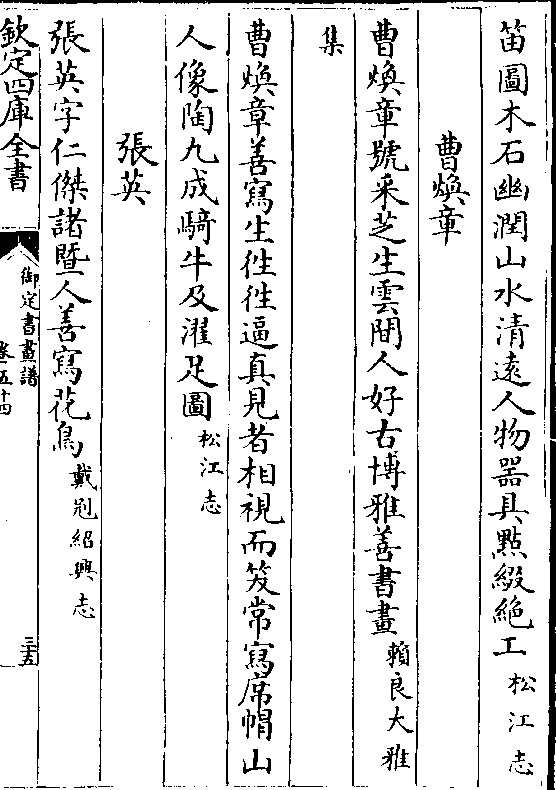 笛圖木石幽潤山水清遠人物器具點綴絶工松江志
曹煥章
曹煥章號采芝生雲間人好古博雅善書畫賴良大雅
集
曹煥章善寫生徃徃逼真見者相視而笑常寫席帽山
人像陶九成騎牛及濯足圖松江志
張英
張英字仁傑諸暨人善寫花鳥戴冠紹興志
欽定四庫全書
御定書畫譜
卷五十四
三五